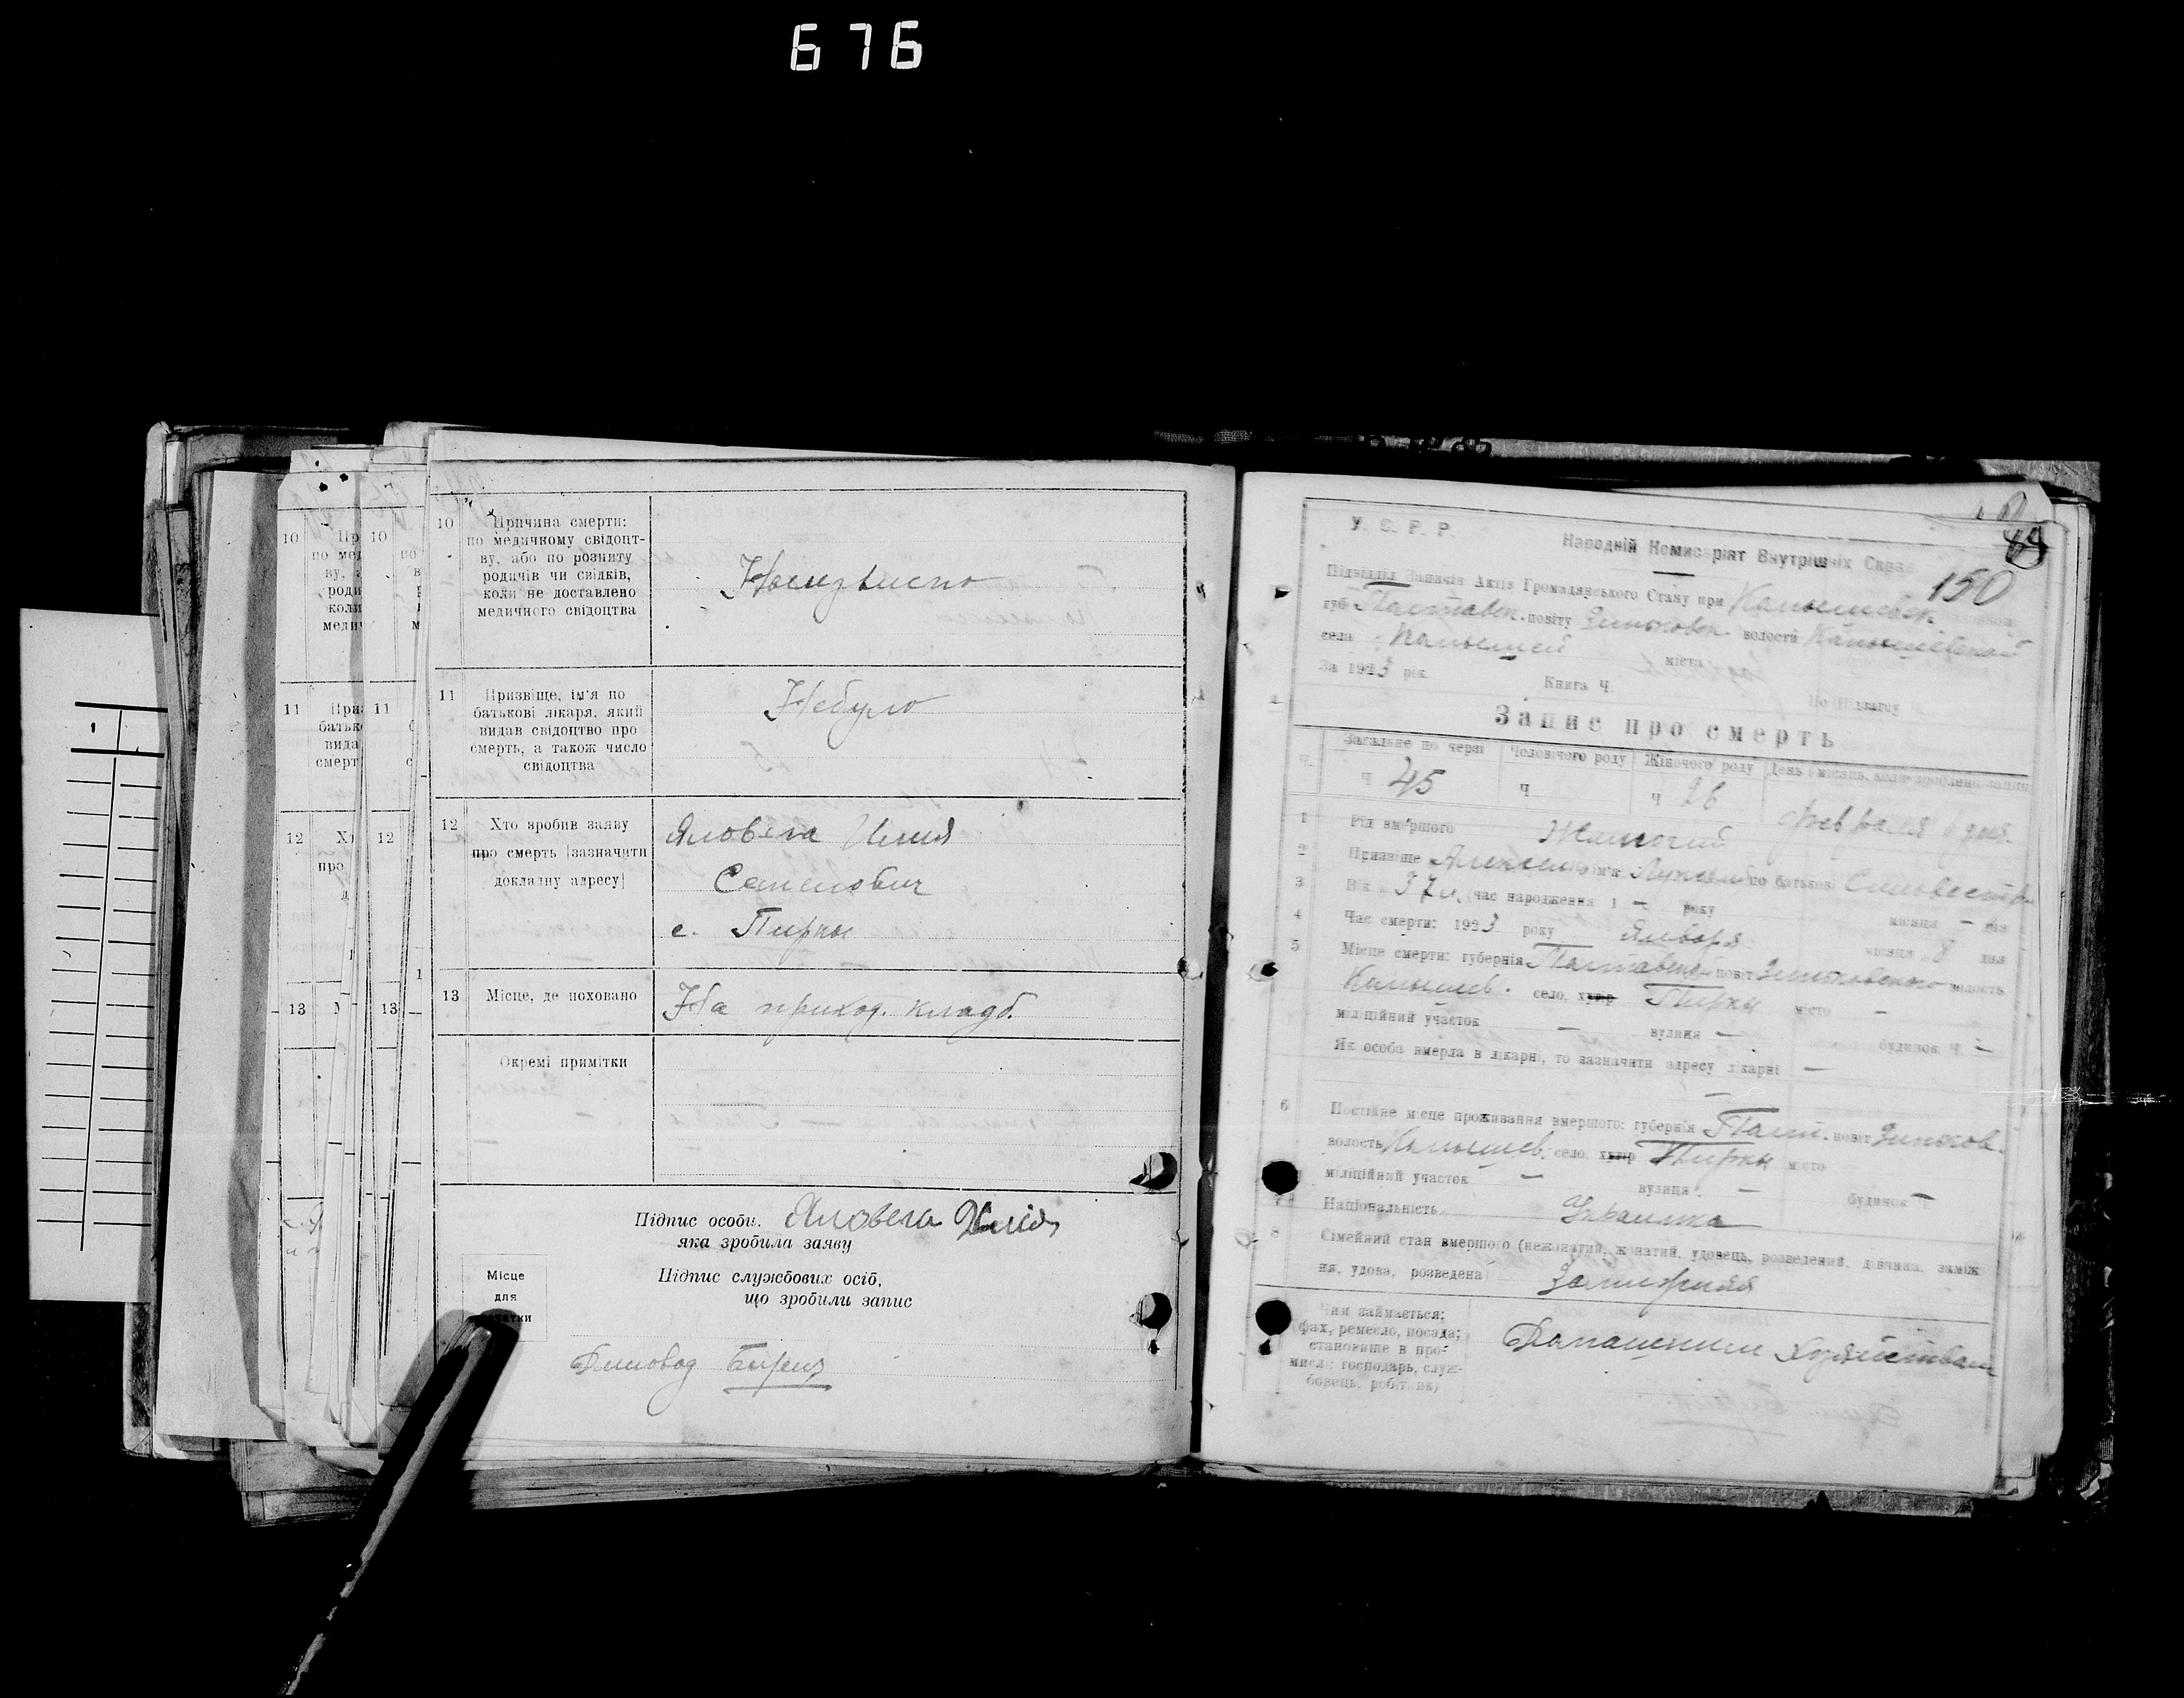 676
10
Причина смерти:
по медичному свідоцт-
ву, або по розпиту
родичів чи свідків,
коли не доставлено
медичного свідоцтва
11
Призвіще, ім'я по
батькові лікаря, який
видав свідоцтво про
смерть, а також число
свідоцтва
Небуло
12
Хто зробив заяву
про смерть (зазначити
докладну адресу)
Яловега Илия
Семенович
с. Пирки
13
Місце, де поховано
На приход. кладб.
Окремі примітки
Підпис особи, Яловега Илія
яка зробила заяву
Місце
для
печатки
Підпис службових осіб,
що зробили запис
Діловод
У. С. Р. Р.
Народній Комисаріят Внутрішніх Справ
69
150
Підвідділ Записів Актів Громадянського Стану при Камышевск.
губ. Полтавск. повіту Зиньковск. волости Камышевской
села Камышей міста
За 1923 рік
Книга Ч.
По Підзагсу
Запис про смерть
Ч.
Загальне по черзі
Чоловічого роду
Жіночого роду
День і місяць, коли зроблено запис
Ч 45
Ч
Ч 26
февраля 6 дня.
1
Рід вмершого Жіночий
2
Призвіще Алексенко ім'я по батькові Сильвестр.
3
Вік 37 л. (час народження 1 — року місяця — дня
4
Час смерти: 1923 року Января місяця 8 дня
5
Місце смерти: губернія Полтавской повіт Зиньковского волость
Камышев. село, хутір Пирки місто —
міліційний участок — вулиця — будинок Ч —
Як особа вмерла в лікарні, то зазначити адресу лікарні —
6
Постійне місце проживання вмершого: губернія Полт. повіт Зиньков.
волость Камышев. село, хутір Пирки місто
міліційний участок — вулиця — будинок —
7
Національність Украинка
8
Сімейний стан вмершого (нежонатий, жонатий, удовець, розведений, дівчина, заміж
ня, удова, розведена) Замужняя
Чим займається:
фах, ремесло, посада;
становище в про-
мислі: господарь, служ-
бовець, робітник)
Домашним хозяйством